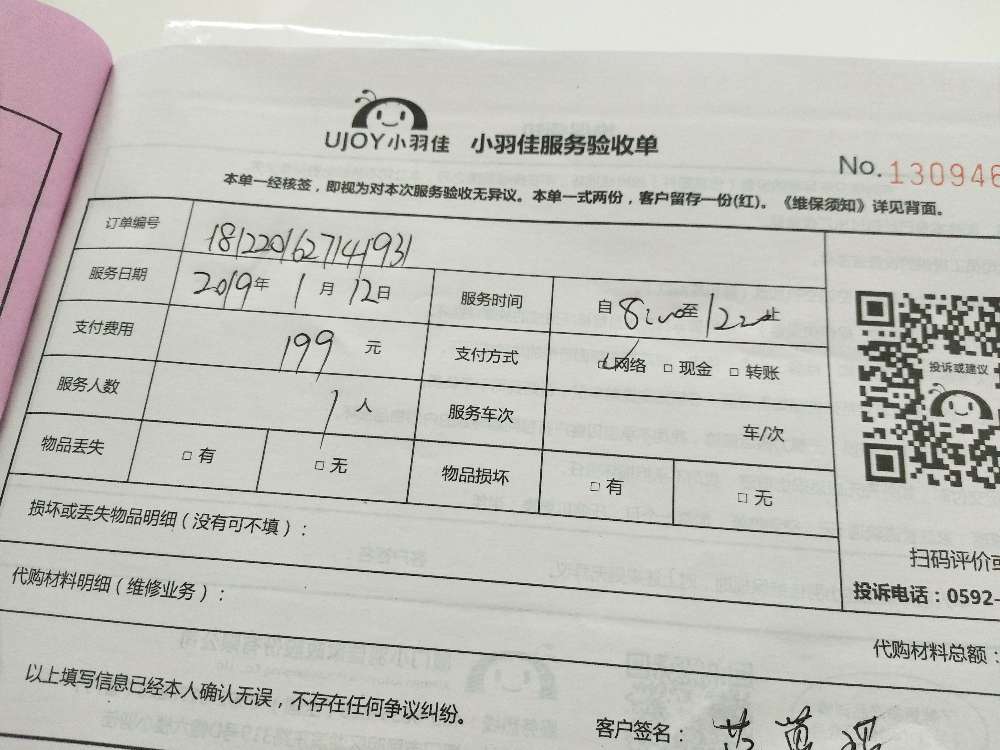 UJOY小羽佳 小羽佳服务验收单
No. 130946
本单一经核签，即视为对本次服务验收无异议。本单一式两份，客户留存一份(红)。《维保须知》详见背面。
订单编号 181220162714193
服务日期 2019年 1月 12日 服务时间 自 8:00 至 12:00 止
支付费用 199 元 支付方式 ☑网络 □现金 □转账
服务人数 1 人 服务车次 车/次
物品丢失 □有 □无 物品损坏 □有 □无
投诉或建议
损坏或丢失物品明细（没有可不填）：
扫码评价或
投诉电话：0592-
代购材料明细（维修业务）：
代购材料总额：
以上填写信息已经本人确认无误，不存在任何争议纠纷。
客户签名：